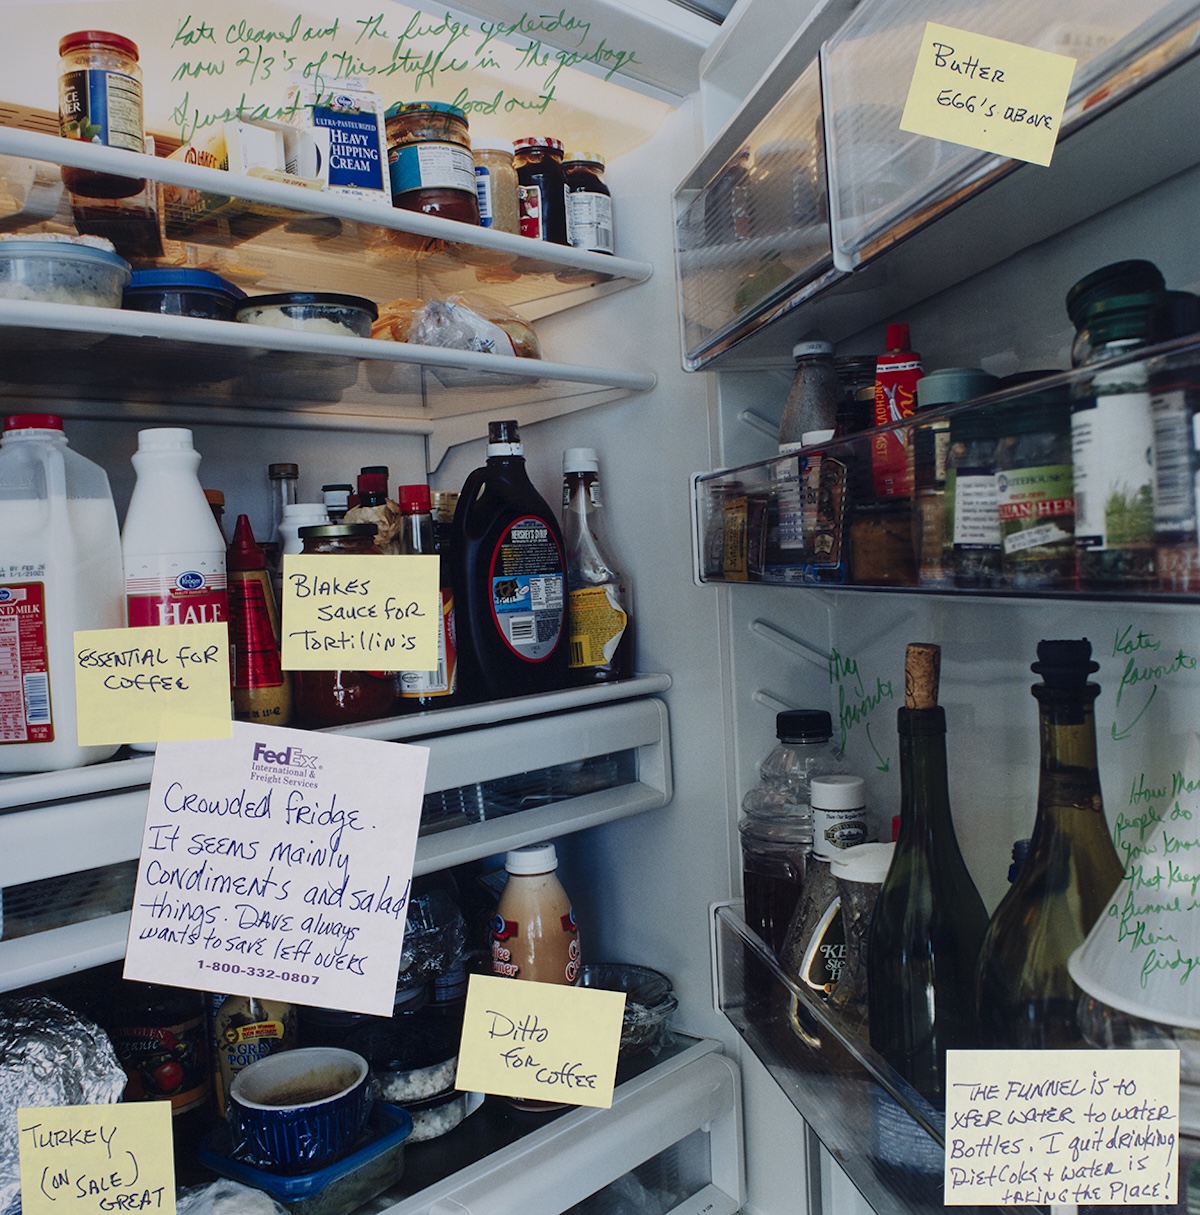 Kate cleaned out The fridge yesterday
now 2/3's of this stuff is in The garbage
I just cant food out
Butter
EGG's ABOVE
ULTRA-PASTEURIZED
HEAVY
WHIPPING
CREAM
ANCHOVY
PASTE
HERSHEY'S SYRUP
Kroger
HALF
D MILK
BLAKES
SAUCE FOR
TORTILLINIS
ESSENTIAL FOR
COFFEE
My
favorite
Kates
favorite
How Many
people do
you Know
That Keep
a funnel in
Their
fridge
FedEx
International &
Freight Services
CROWDED fRIDGE.
IT SEEMS MAINLY
CONDIMENTS AND SALAD
things. DAVE always
wants to SAVE left overs
1-800-332-0807
Ditto
FOR
COFFEE
GREY
POUPON
TURKEY
(ON SALE)
GREAT
THE FUNNEL is to
XFER WATER to WATER
Bottles. I quit drinking
Diet Coke + WATER is
taking the Place!